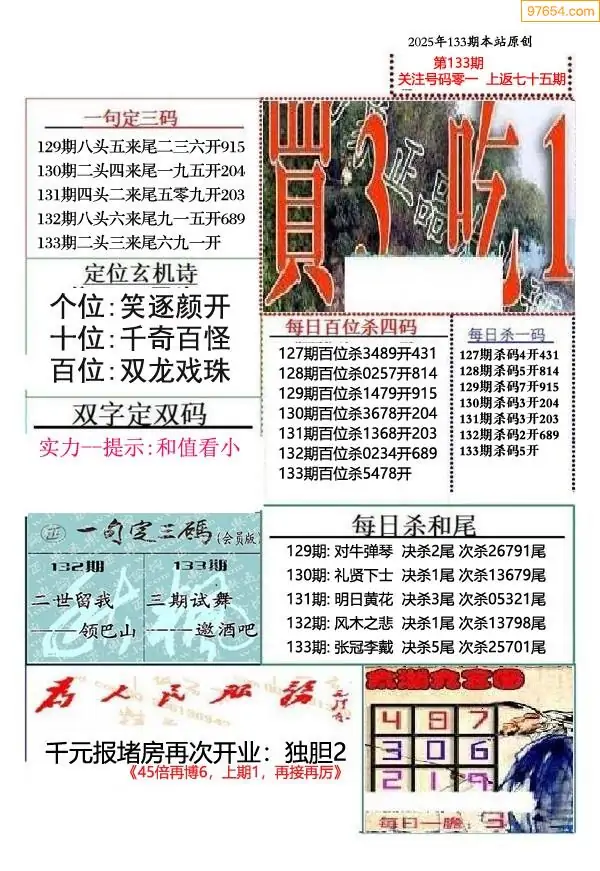 97654.com
2025年133期本站原创
第133期
关注号码零一 上返七十五期
一句定三码
129期八头五来尾二三六开915
130期二头四来尾一九五开204
131期四头二来尾五零九开203
132期八头六来尾九一五开689
133期二头三来尾六九一开
買3吃1
正品
定位玄机诗
个位:笑逐颜开
十位:千奇百怪
百位:双龙戏珠
双字定双码
实力--提示:和值看小
每日百位杀四码
127期百位杀3489开431
128期百位杀0257开814
129期百位杀1479开915
130期百位杀3678开204
131期百位杀1368开203
132期百位杀0234开689
133期百位杀5478开
每日杀一码
127期杀码4开431
128期杀码5开814
129期杀码7开915
130期杀码3开204
131期杀码3开203
132期杀码2开689
133期杀码5开
正 一句定三碼(会员版)
132期 133期
二世留我 三期试舞
——领巴山 ——邀酒吧
每日杀和尾
129期: 对牛弹琴 决杀2尾 次杀26791尾
130期: 礼贤下士 决杀1尾 次杀13679尾
131期: 明日黄花 决杀3尾 次杀05321尾
132期: 风木之悲 决杀1尾 次杀13798尾
133期: 张冠李戴 决杀5尾 次杀25701尾
为人民服务
千元报堵房再次开业：独胆2
《45倍再博6，上期1，再接再厉》
4 9 7
3 0 6
2 1 9
每日一胆: 3